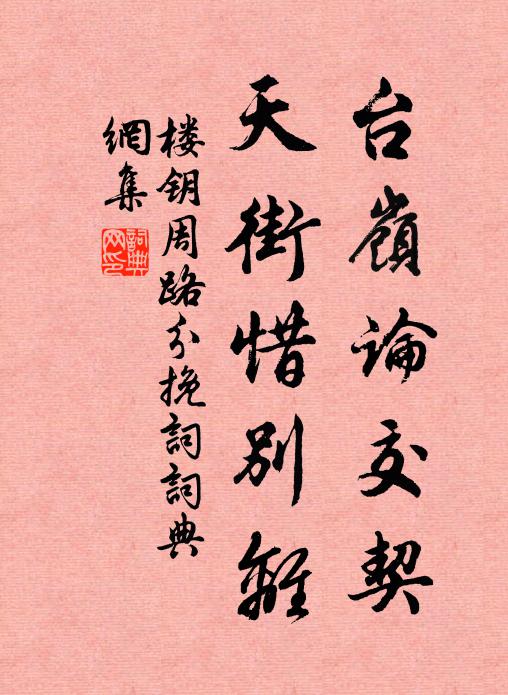 台嶺論交契
天街惜別離
楼钥周路分挽詞詞典
網集
詞典網印